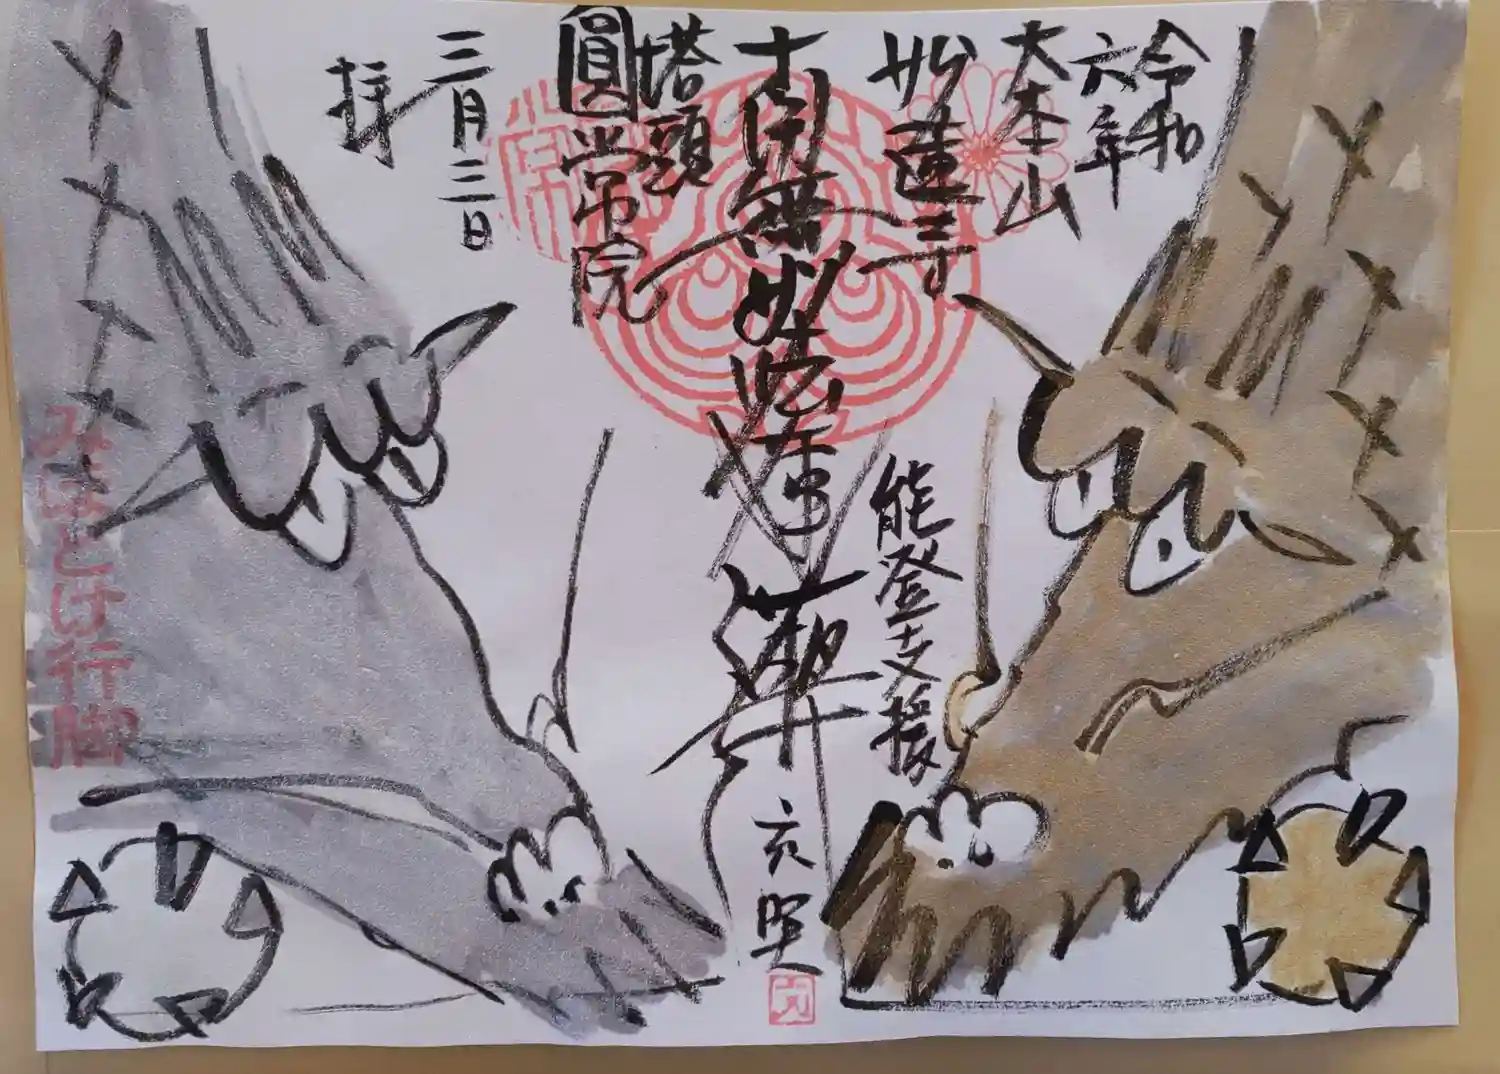 令和
六年
大本山
妙蓮寺
南無妙法蓮華
塔頭
圓常院
三月三日
拝
能登支援
みほとけ行脚